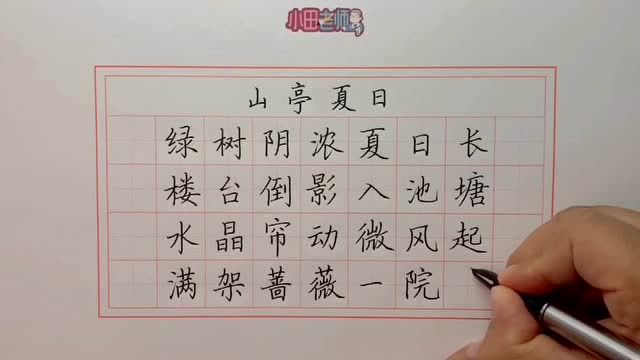 小田老师
山亭夏日
绿树阴浓夏日长
楼台倒影入池塘
水晶帘动微风起
满架蔷薇一院